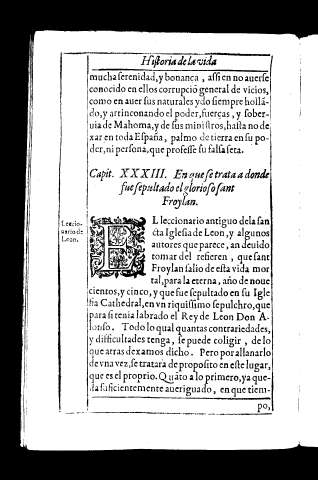 Historia de la vida
mucha serenidad, y bonança, assi en no auerse
conocido en ellos corrupció general de vicios,
como en auer sus naturales ydo siempre hollá-
do, y arrinconando el poder, fuerças, y sober-
uia de Mahoma, y de sus ministros, hasta no de
xar en toda España, palmo de tierra en su po-
der, ni persona, que professe su falsa seta.
Capit. XXXIII. En que se trata a donde
fue sepultado el glorioso sant
Froylan.
Leccio-
nario de
Leon.
EL leccionario antiguo de la san
cta Iglesia de Leon, y algunos
autores que parece, an deuido
tomar del refieren, que sant
Froylan salio de esta vida mor
tal, para la eterna, año de noue
cientos, y cinco, y que fue sepultado en su Igle
sia Cathedral, en vn riquissimo sepulchro, que
para si tenia labrado el Rey de Leon Don A-
lonso. Todo lo qual quantas contrariedades,
y difficultades tenga, se puede coligir, de lo
que atras dexamos dicho. Pero por allanarlo
de vna vez, se tratara de proposito en este lugar,
que es el proprio. Quáto a lo primero, ya que-
da sufficientemente aueriguado, en que tiem-
po,